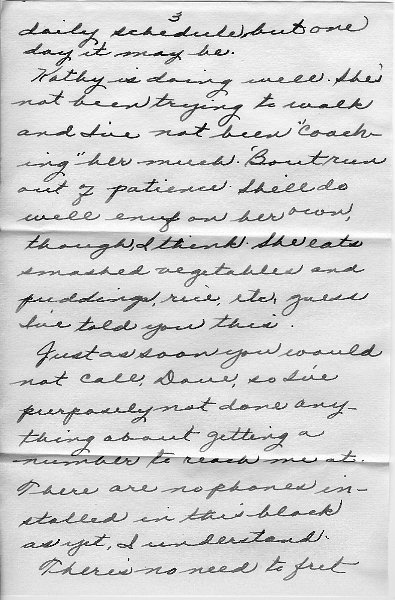 3
daily schedule, but one
day it may be.
Kathy is doing well. She's
not been trying to walk
and I've not been "coach-
ing" her much. 'Bout run
out of patience. She'll do
well enuf on her own,
though, I think. She eats
smashed vegetables and
puddings, rice, etc, guess
I've told you this.
Just as soon you would
not call, Dave, so I've
purposely not done any-
thing about getting a
number to reach me at.
There are no phones in-
stalled in this block
as yet, I understand.
There's no need to fret